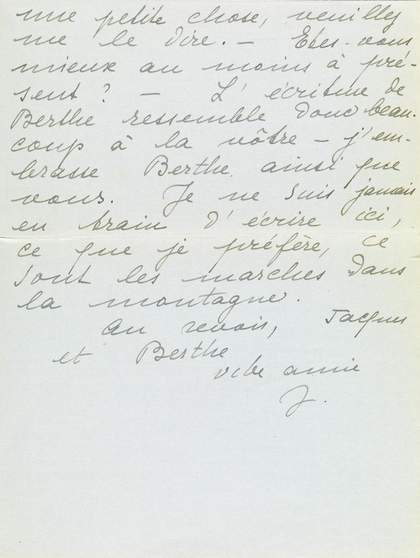 une petite chose, veuillez
me le dire. – Etes-vous
mieux au moins à pré-
sent? – L'écriture de
Berthe ressemble donc beau-
coup à la vôtre – j'em-
brasse Berthe ainsi que
vous. Je ne suis jamais
en train d'écrire ici,
ce que je préfère, ce
sont les marches dans
la montagne.
Au revoir, Jacques
et Berthe
amie
J.